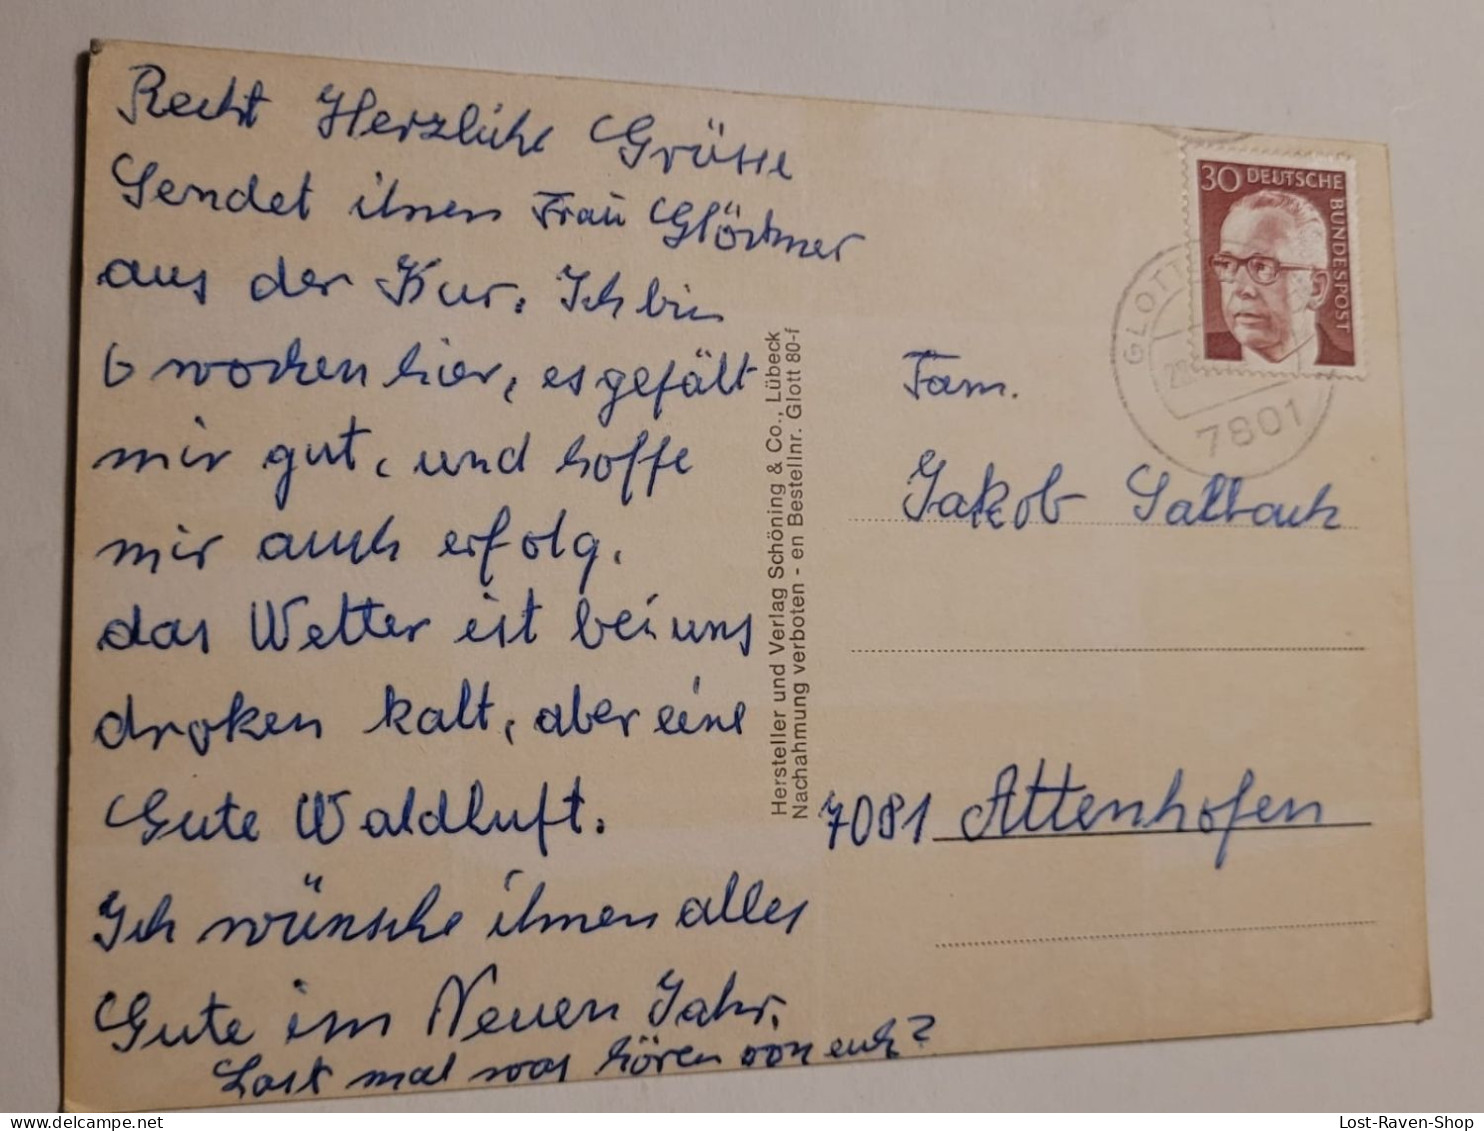 Recht Herzliche Grüsse
Sendet ihnen Frau Glöckner
aus der Kur. Ich bin
6 wochen hier, es gefält
mir gut, und hoffe
mir auch erfolg.
das Wetter ist bei uns
droken kalt, aber eine
Gute Waldluft.
Ich wünsche ihnen alles
Gute im Neuen Jahr.
Last mal was hören von euch?
Hersteller und Verlag Schöning & Co., Lübeck
Nachahmung verboten - en Bestellnr. Glott 80-f
30 DEUTSCHE
BUNDESPOST
GLOTT
7801
Fam.
Jakob Salbach
7081 Attenhofen
Lost-Raven-Shop